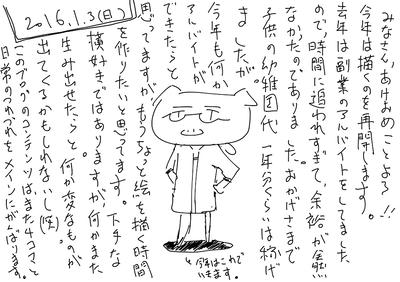 2016.1.3(日)
みなさん、あけおめことよろ!!
今年は描くのを再開します。
去年は副業のアルバイトをしてました
ので、時間に追われすぎて、余裕が全然
なかったのでありました。おかげさまで
子供の幼稚園代一年分くらいは稼げ
ましたが。
今年も何か
アルバイトが
できたらと
思ってますがもうちょと絵を描く時間
を作りたいと思ってます。下手な
横好きではありますが、何かまた
生み出せたらと 何か変なものが
出てくるかもしれないし(笑)
このブログのコンテンツはまた4コマと
日常のつれづれをメインにがんばります。
今年はこれで
いきます。